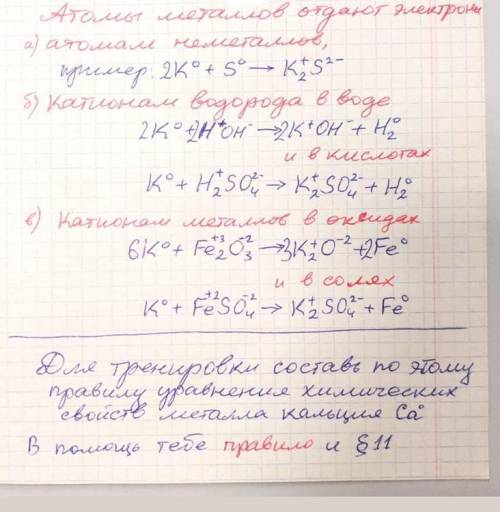 Атомы металлов отдают электроны
а) атомам неметаллов,
пример: 2K⁰ + S⁰ → K₂⁺S²⁻
б) Катионам водорода в воде
2K⁰ + 2H⁺OH⁻ → 2K⁺OH⁻ + H₂⁰
и в кислотах
K⁰ + H₂⁺SO₄²⁻ → K₂⁺SO₄²⁻ + H₂⁰
в) Катионам металлов в оксидах
6K⁰ + Fe₂⁺³O₃⁻² → 3K₂⁺O⁻² + 2Fe⁰
и в солях
K⁰ + Fe⁺²SO₄⁻² → K₂⁺SO₄²⁻ + Fe⁰
Для тренировки составь по этому
правилу уравнения химических
свойств металла кальция Ca⁰
В помощь тебе правило и § 11